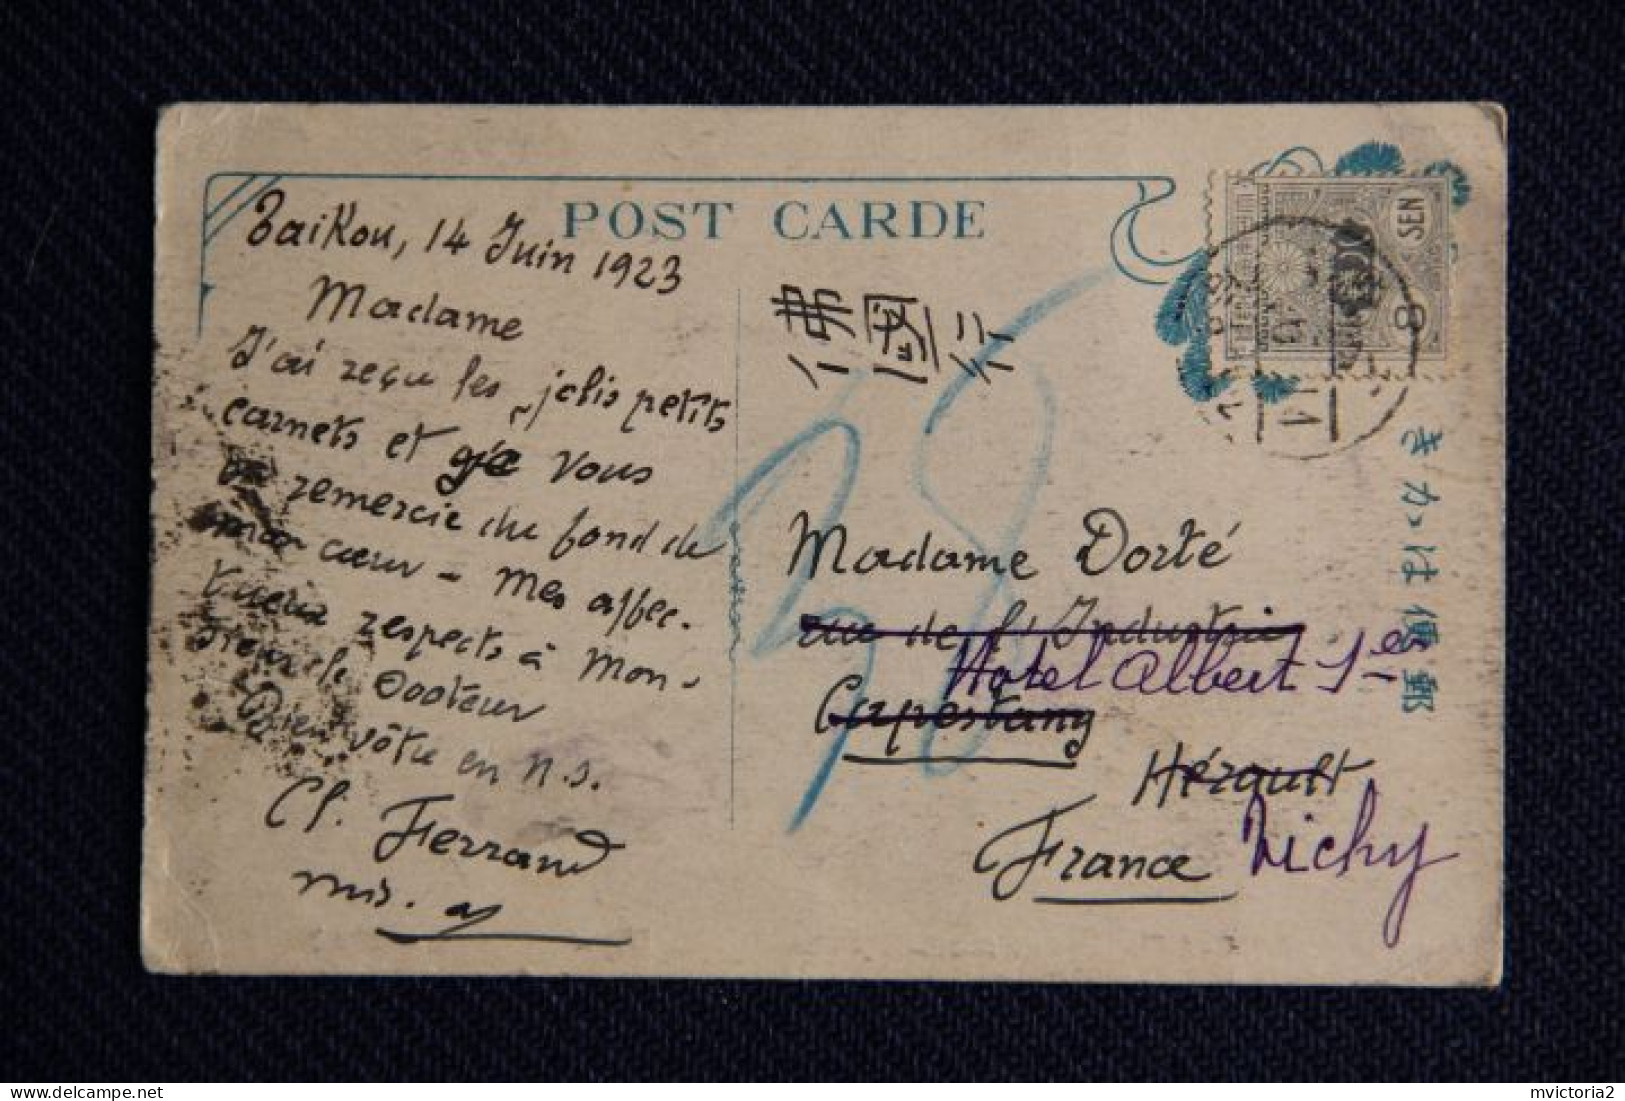 POST CARDE
Taikou, 14 Juin 1923
Madame
J'ai reçu les jolis petits
carnets et je vous
remercie du fond de
mon cœur - mes affec-
tueux respects à Mon-
sieur le Docteur
Bien vôtre en n.s.
Cl. Ferrand
mis. ap
佛國行
38
8 SEN
きかは便郵
Madame Dorté
rue de l'Industrie
Hotel Albert 1er
Capestang
Hérault
France Vichy
mvictoria2